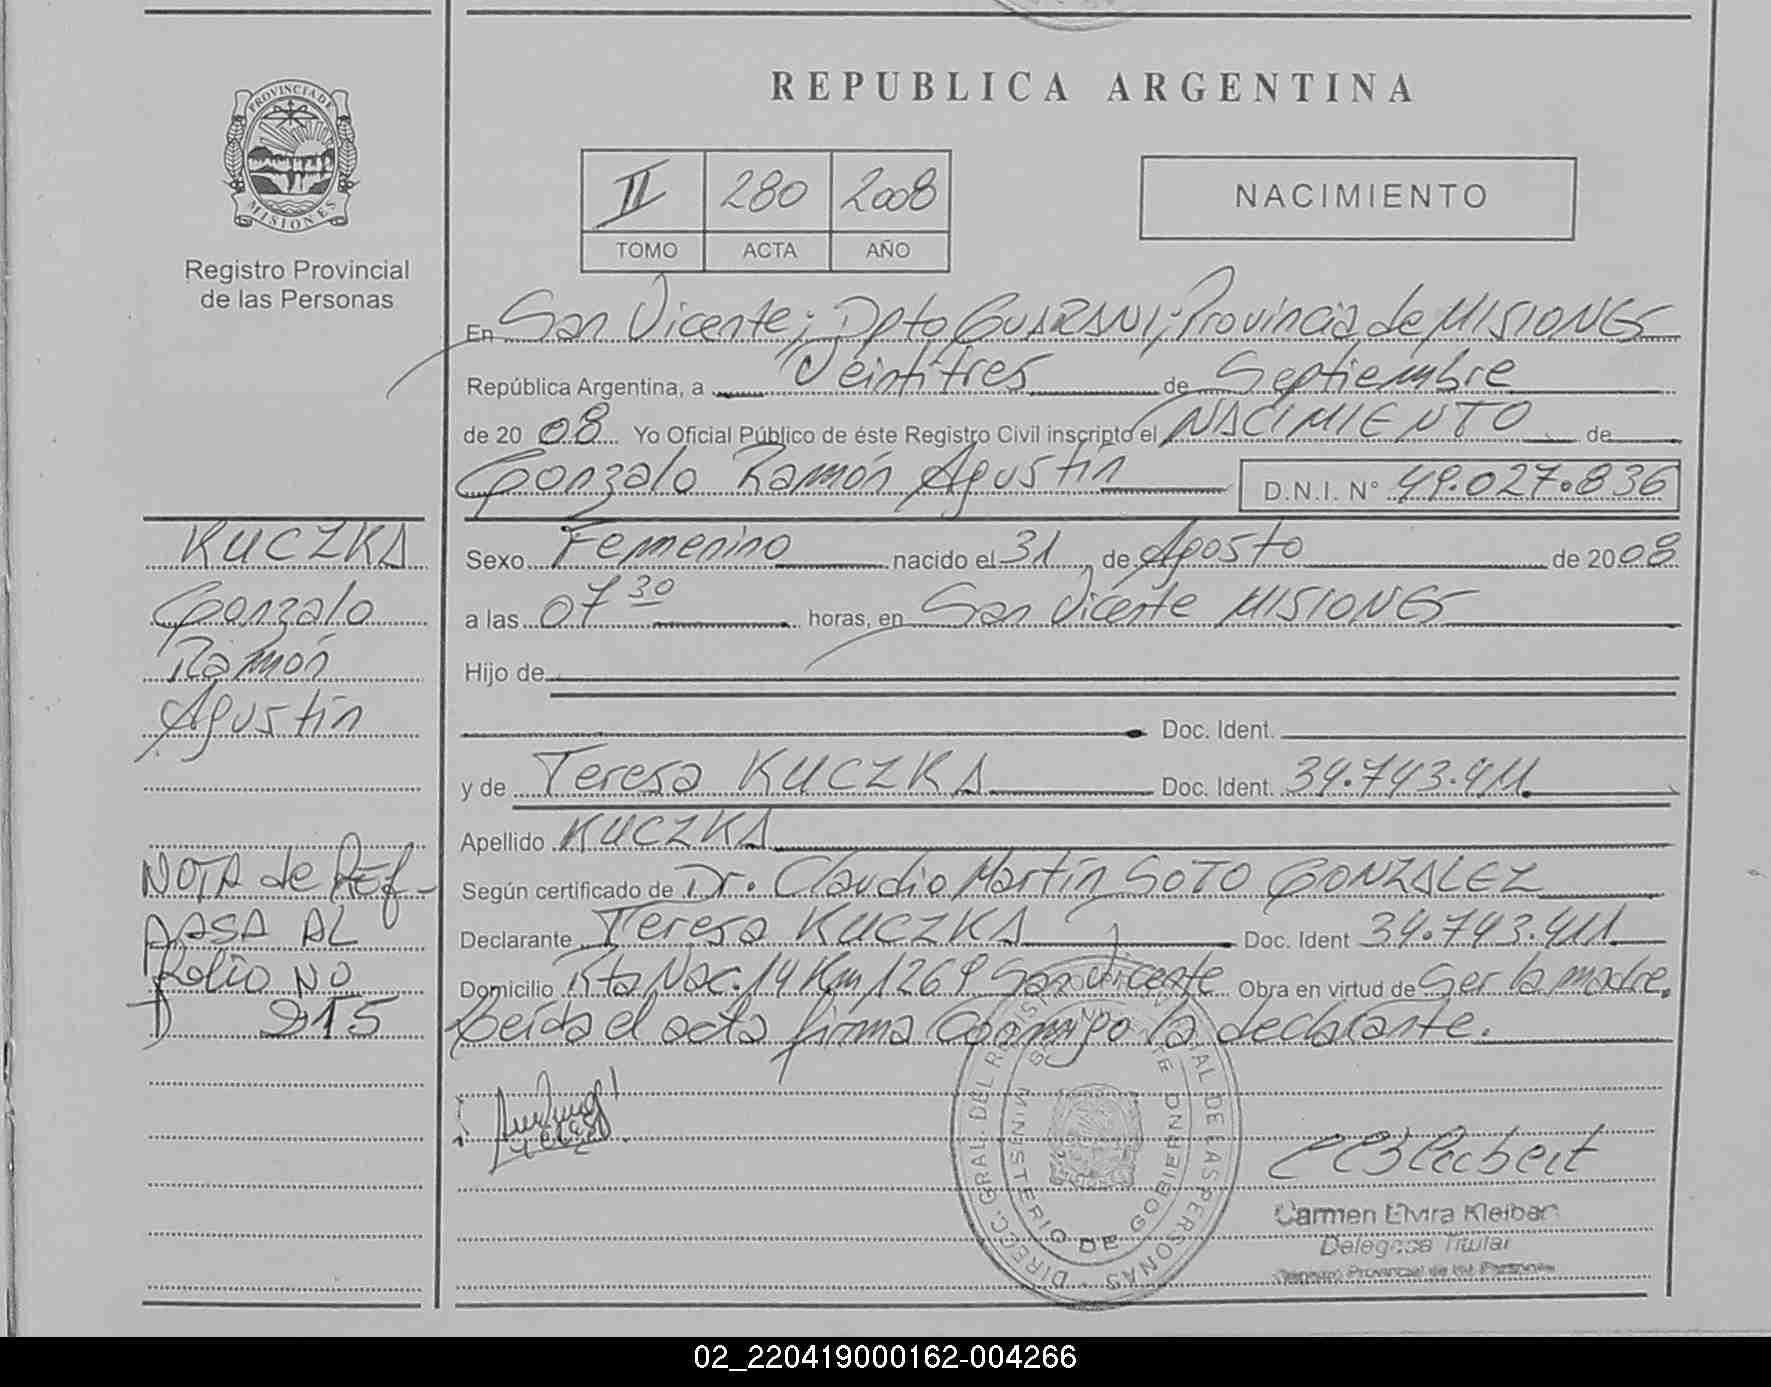 REPUBLICA ARGENTINA
PROVINCIA DE
MISIONES
Registro Provincial
de las Personas
II 280 2008
TOMO ACTA AÑO
NACIMIENTO
En San Vicente; Dpto GUARANI; Provincia de MISIONES
República Argentina, a Veintitres de Septiembre
de 20 08 Yo Oficial Público de éste Registro Civil inscripto el NACIMIENTO de
Gonzalo Ramón Agustín D.N.I. N° 49.027.836
KUCZKA
Gonzalo
Ramón
Agustín
NOTA de REf-
PASA AL
folio No
215
Sexo Femenino nacido el 31 de Agosto de 2008
a las 07 30 horas, en San Vicente MISIONES
Hijo de
Doc. Ident.
y de Teresa KUCZKA Doc. Ident. 34.743.411
Apellido KUCZKA
Según certificado de Dr. Claudio Martín SOTO GONZALEZ
Declarante Teresa KUCZKA Doc. Ident 34.743.411
Domicilio Rta Nac. 14 Km 1269 San Vicente Obra en virtud de Ser la madre.
Leída el acta firma conmigo la declarante.
DIREC. GRAL. DEL DE LAS PERSONAS
MINISTERIO DE GOBIERNO
Carmen Elvira Kleibert
Delegada Titular
Registro Provincial de las Personas
02_220419000162-004266